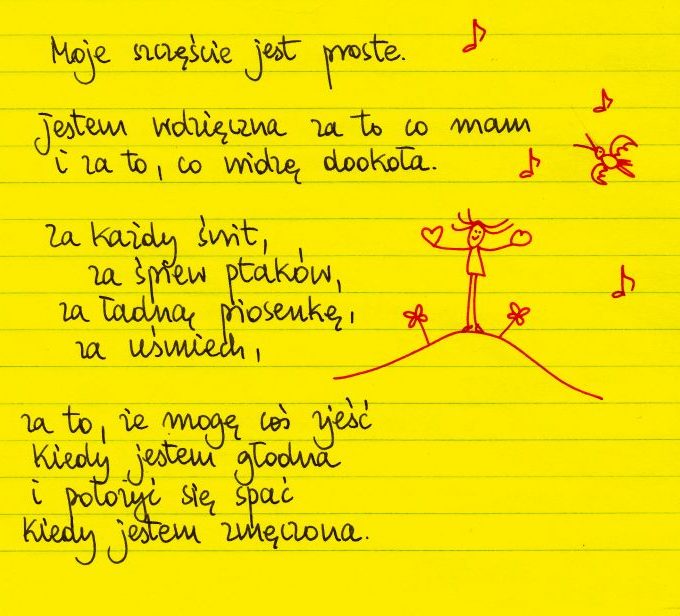 Moje szczęście jest proste.
Jestem wdzięczna za to co mam
i za to, co widzę dookoła.
Za każdy świt,
za śpiew ptaków,
za ładną piosenkę,
za uśmiech,
za to, że mogę coś zjeść
kiedy jestem głodna
i położyć się spać
kiedy jestem zmęczona.